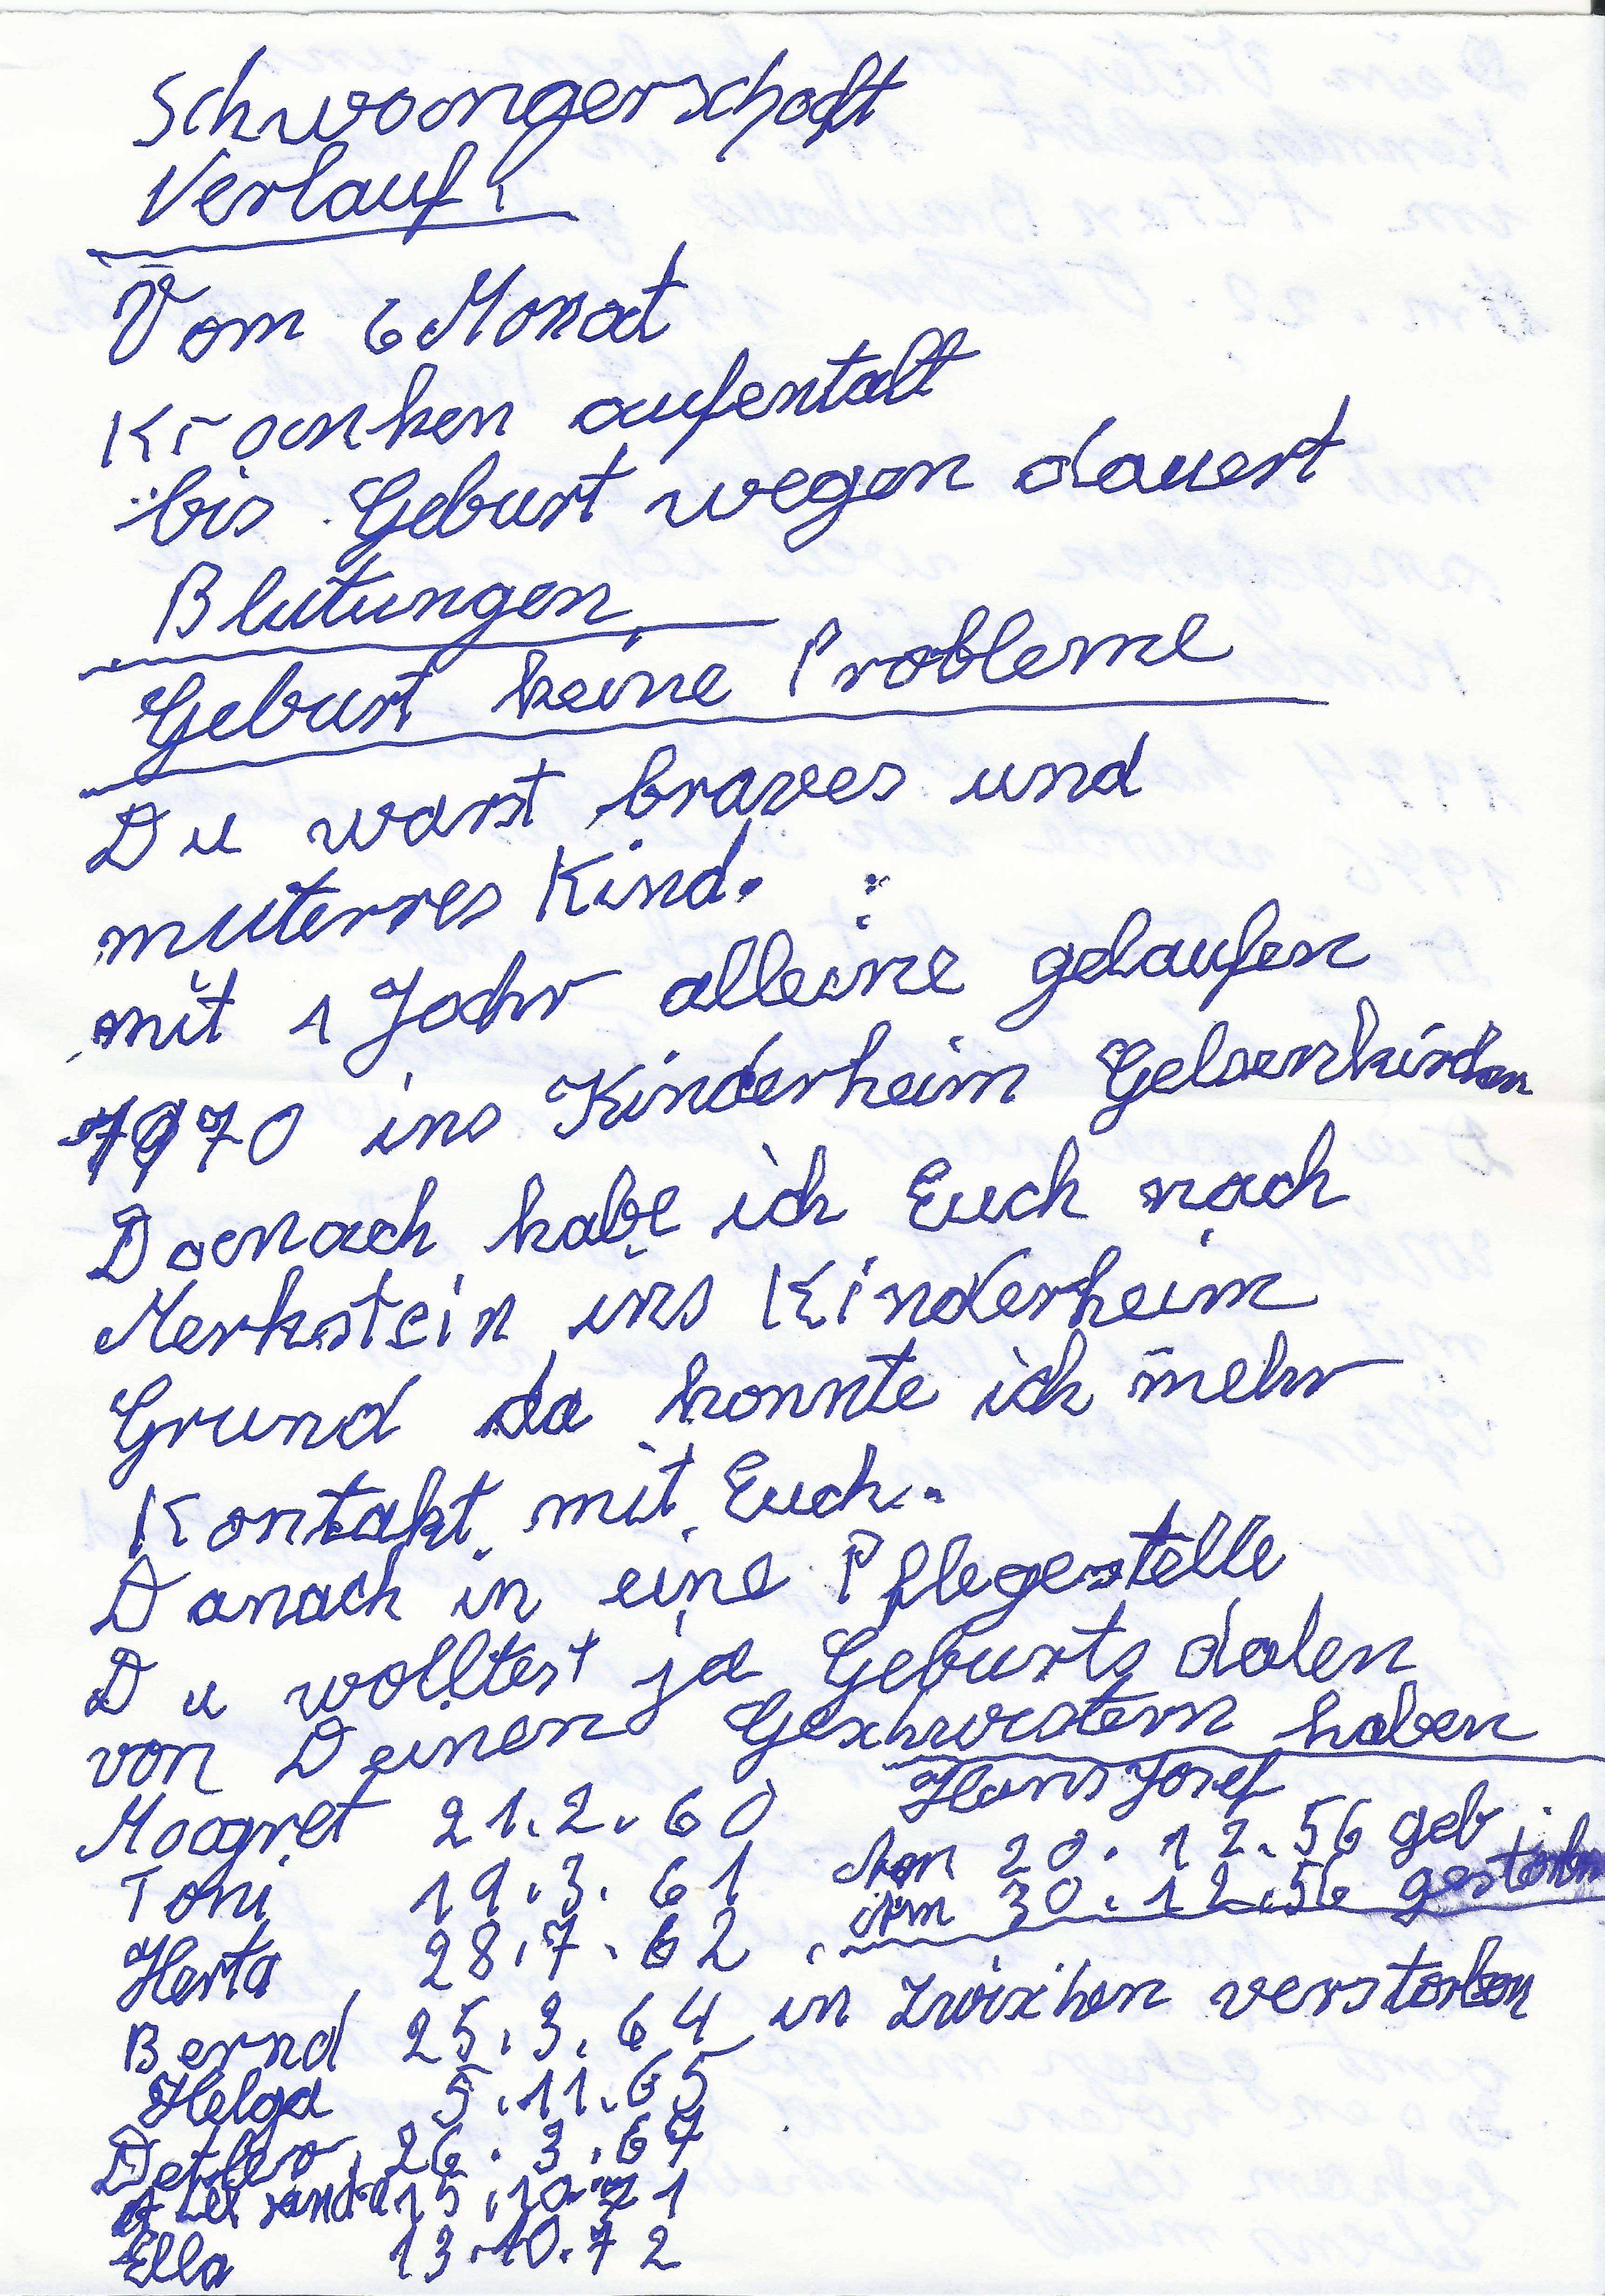 Schwoongerschaft
Verlauf!
Vom 6 Monat
Kranken aufentalt
bis Geburt wegen dauert
Blutungen
Geburt keine Probleme
Du warst braves und
muterres Kind.
mit 1 Jahr alleine gelaufen
1970 ins Kinderheim Gelsenkirchen
Danach habe ich Euch nach
Merkstein ins Kinderheim
Grund da konnte ich mehr
Kontakt mit Euch.
Danach in eine Pflegestelle
Du wolltest ja Geburts daten
von Deinen Geschwistern haben
Maagret 21.2.60 Hans Josef
Toni 19.3.61 den 20.12.56 geb.
Herta 28.7.62 am 30.12.56 gestorben
Bernd 25.3.64 in zwischen verstorben
Helga 5.11.65
Detlev 26.3.67
15.10.71
Ella 13.10.72